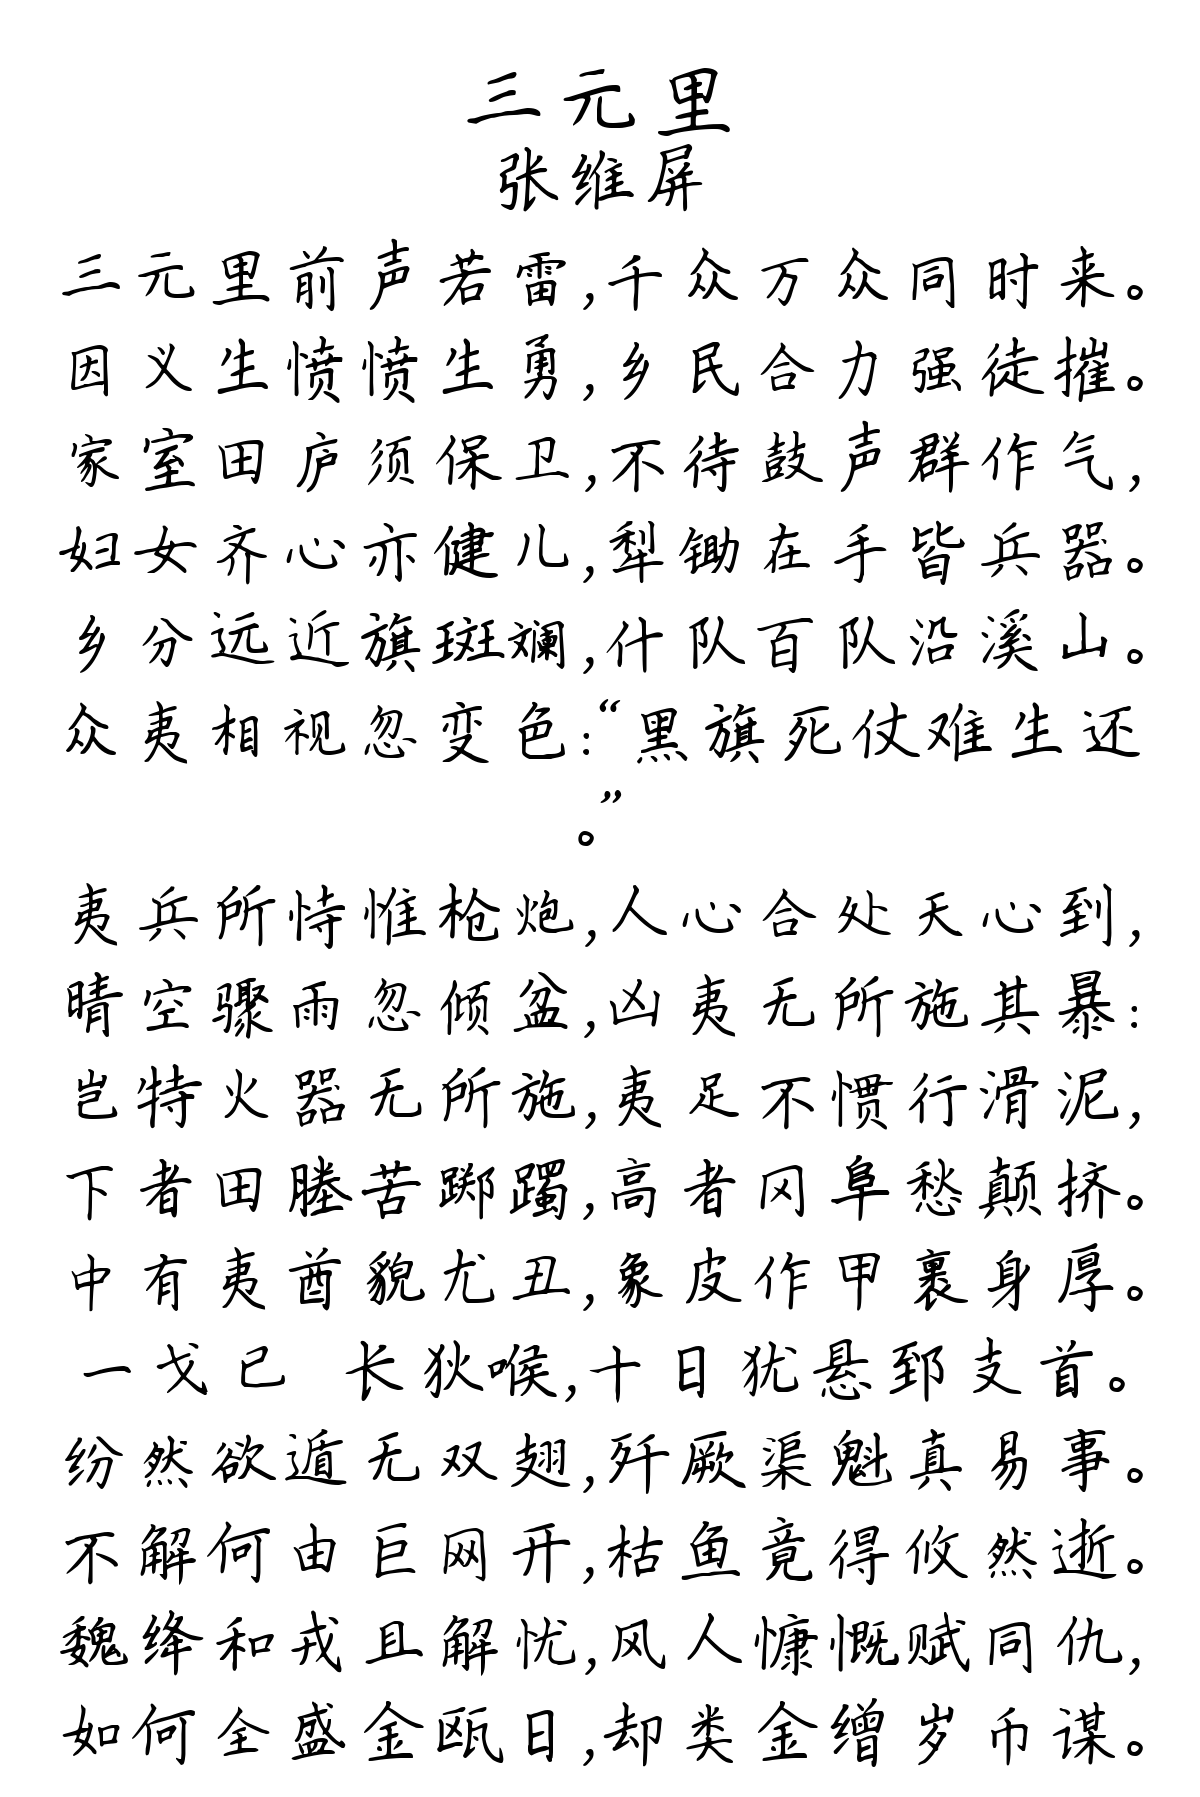 三元里
张维屏
三元里前声若雷,千众万众同时来。
因义生愤愤生勇,乡民合力强徒摧。
家室田庐须保卫,不待鼓声群作气,
妇女齐心亦健儿,犁锄在手皆兵器。
乡分远近旗斑斓,什队百队沿溪山。
众夷相视忽变色:“黑旗死仗难生还
。”
夷兵所恃惟枪炮,人心合处天心到,
晴空骤雨忽倾盆,凶夷无所施其暴:
岂特火器无所施,夷足不惯行滑泥,
下者田塍苦踯躅,高者冈阜愁颠挤。
中有夷酋貌尤丑,象皮作甲裹身厚。
一戈已 长狄喉,十日犹悬郅支首。
纷然欲遁无双翅,歼厥渠魁真易事。
不解何由巨网开,枯鱼竟得攸然逝。
魏绛和戎且解忧,风人慷慨赋同仇,
如何全盛金瓯日,却类金缯岁币谋。